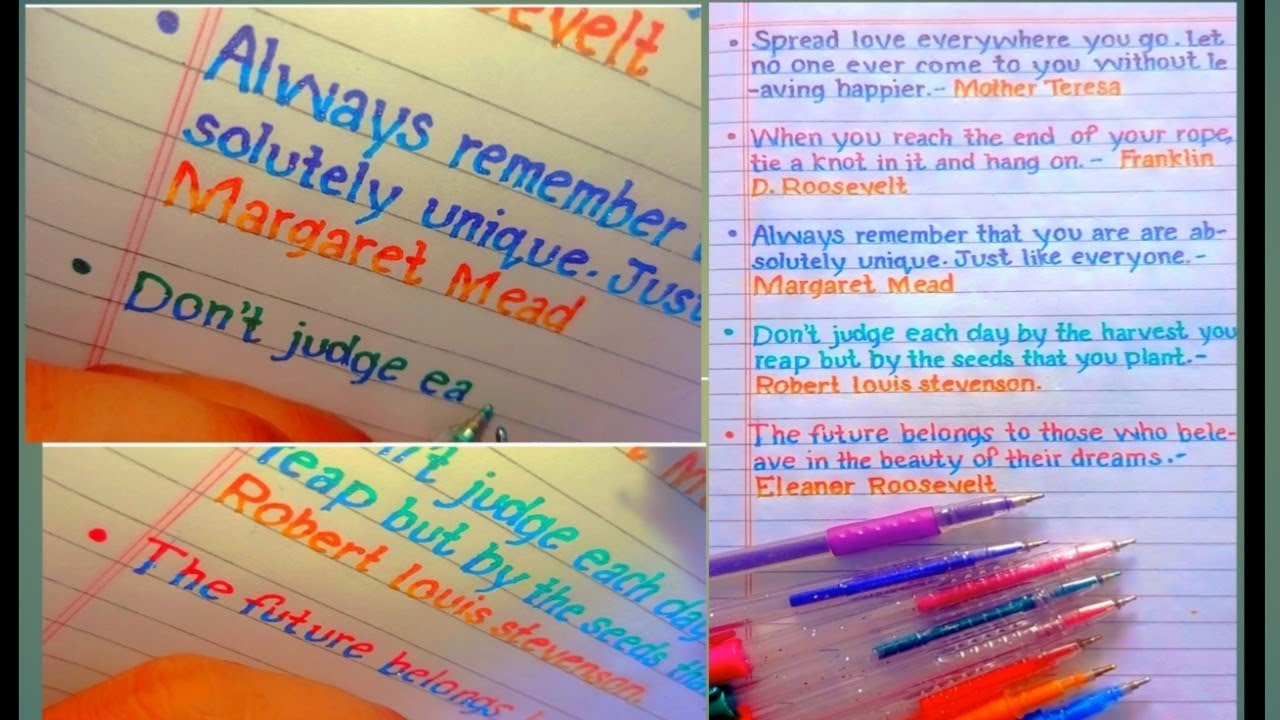 sevelt
• Always remember
solutely unique. Just
Margaret Mead
• Don't judge ea
n't judge each day
reap but by the seeds tha
Robert louis stevenson.
• The future belongs
• Spread love everywhere you go. Let
no one ever come to you without le
-aving happier.- Mother Teresa
• When you reach the end of your rope,
tie a knot in it and hang on. - Franklin
D. Roosevelt
• Always remember that you are are ab-
solutely unique. Just like everyone.-
Margaret Mead
• Don't judge each day by the harvest you
reap but by the seeds that you plant.-
Robert louis stevenson.
• The future belongs to those who bele-
ave in the beauty of their dreams.-
Eleaner Roosevelt